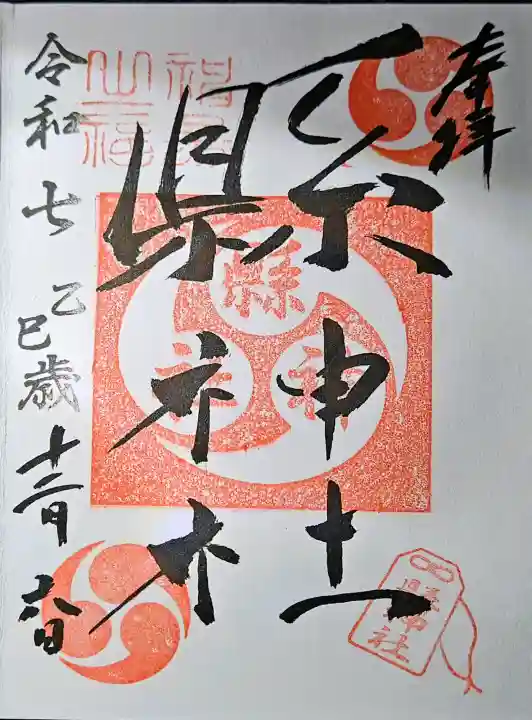 奉拝
縣神社
縣
神
社
縣神社
令和七乙巳歳十二月六日